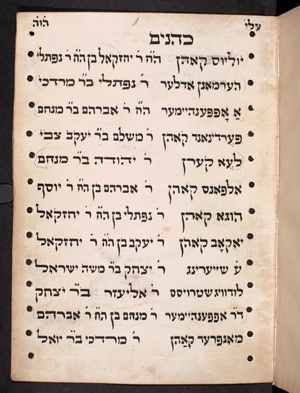 עלי 1 הוה
כהנים
יוליוס קאהן הח׳ ר׳ יחזקאל בן הח׳ ר׳ נפתלי
הערמאן אדלער ר׳ נפתלי בר׳ מרדכי
א׳ אפפענהיימער הח׳ ר׳ אברהם בר׳ מנחם
פערדינאנד קאהן ר׳ משלם בר׳ יעקב צבי
לעא קערן ר׳ יהודה בר׳ מנחם
אלפאנס קאהן ר׳ אברהם בן הח׳ ר׳ יוסף
הוגא קאהן ר׳ נפתלי בן הח׳ ר׳ יחזקאל
יאקאב קאהן ר׳ יעקב בן הח׳ ר׳ יחזקאל
ש׳ שייערינג ר׳ יצחק בר׳ משה ישראל
לודוויג שטרויסס ר׳ אליעזר בר׳ יצחק
דר׳ אפפענהיימער ר׳ מנחם בן הח׳ ר׳ אברהם
מאנפרעד קאהן ר׳ מרדכי בר׳ יואל